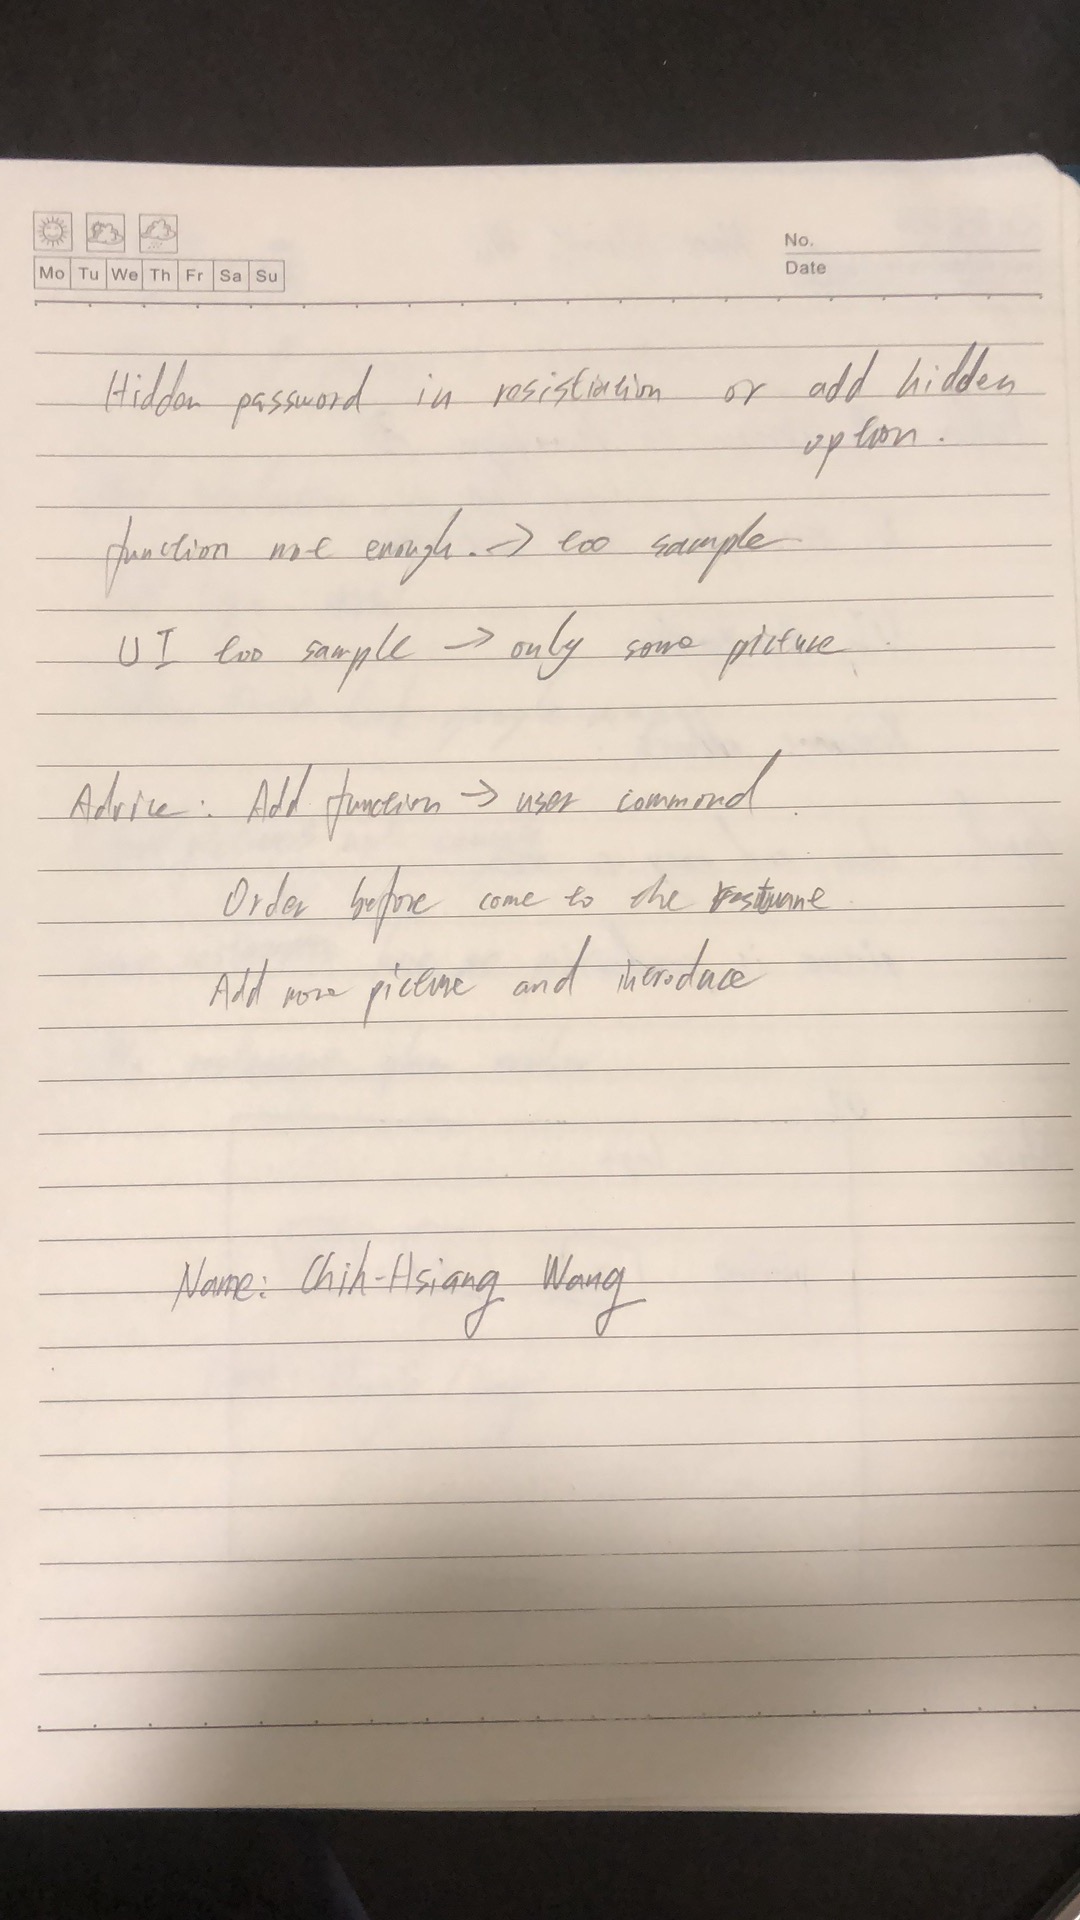 No.
Date
Mo Tu We Th Fr Sa Su
Hidden password in resistiation or add hidden
option.
function not enough. → too sample
UI too sample → only some picture
Advice: Add function → user commond
Order before come to the restuane
Add more picture and introduce
Name: Chih-Hsiang Wang